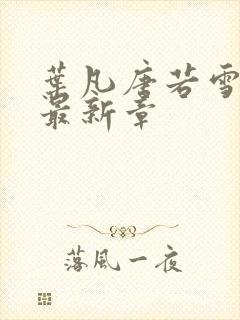 葉凡唐若雪
最新章
落風一夜